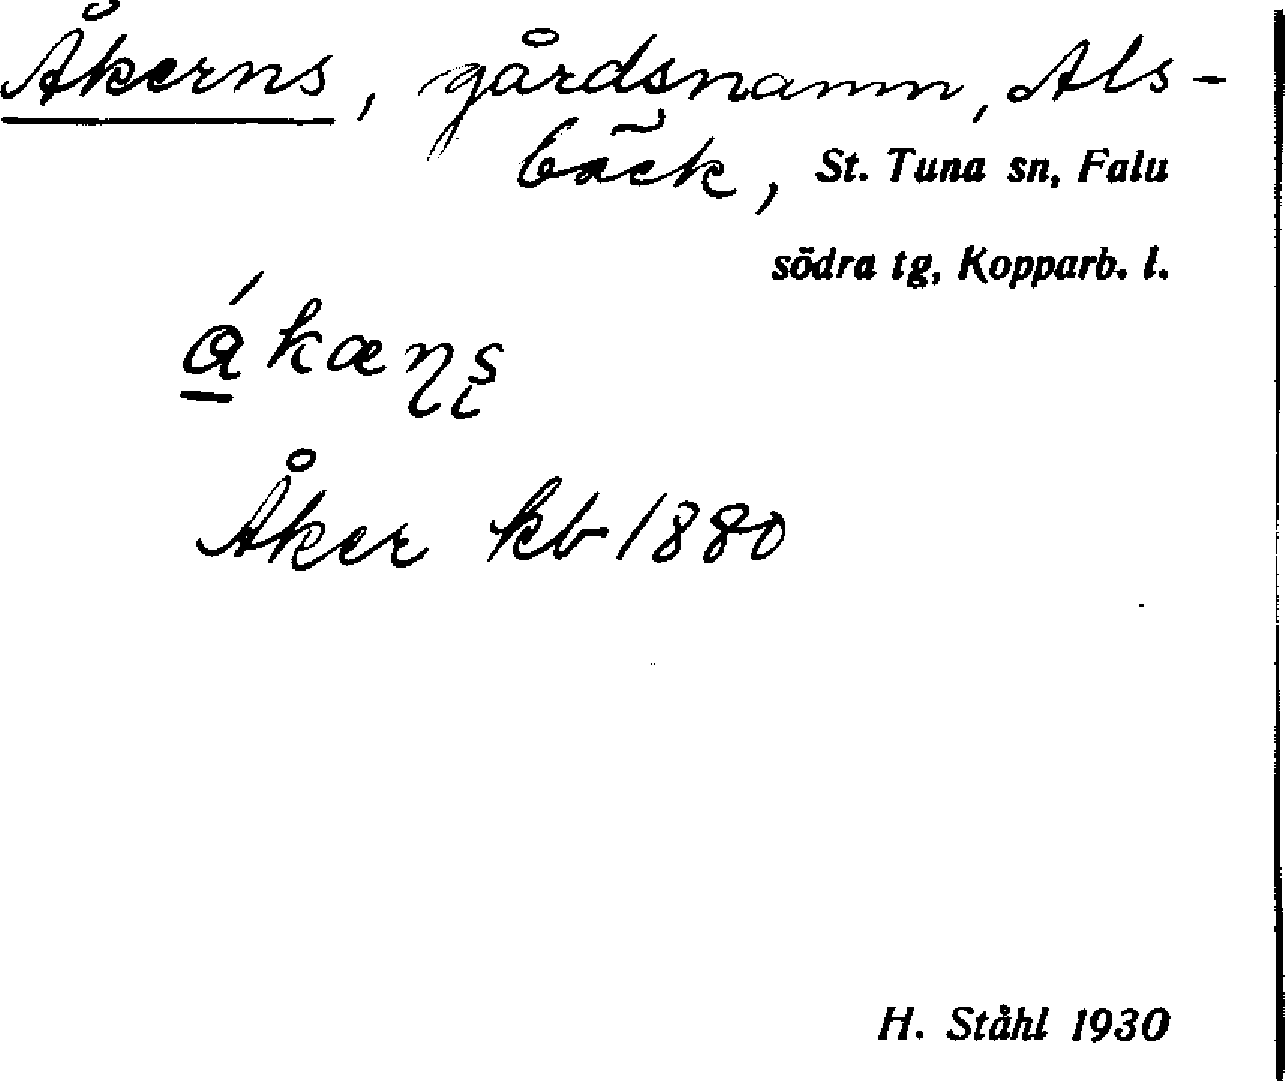 Åkerns, gårdsnamn, Als-
bäck, St. Tuna sn, Falu
södra tg, Kopparb. l.
Åker kb 1880
H. Ståhl 1930